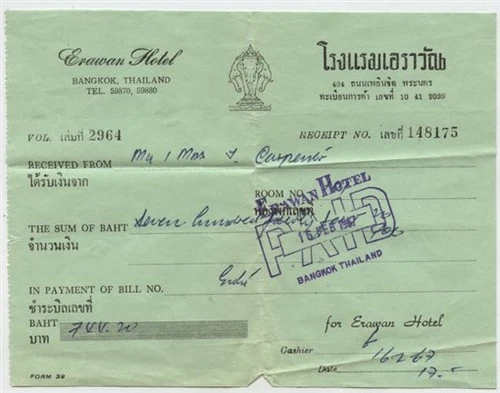 Erawan Hotel
BANGKOK, THAILAND
TEL. 59870, 59880
โรงแรมเอราวัณ
494 ถนนเพลินจิต พระนคร
ทะเบียนการค้า เลขที่ 10 41 2039
VOL. เล่มที่ 2964
RECEIPT NO. เลขที่ 148175
RECEIVED FROM Mr / Mrs J. Carpenter
ได้รับเงินจาก
ROOM NO.
ERAWAN HOTEL
PAID
16 FEB 1967
BANGKOK THAILAND
THE SUM OF BAHT Seven hundred
จำนวนเงิน
IN PAYMENT OF BILL NO.
ชำระบิลเลขที่
BAHT 744.20
บาท
for Erawan Hotel
Cashier
Date 16267
FORM 39